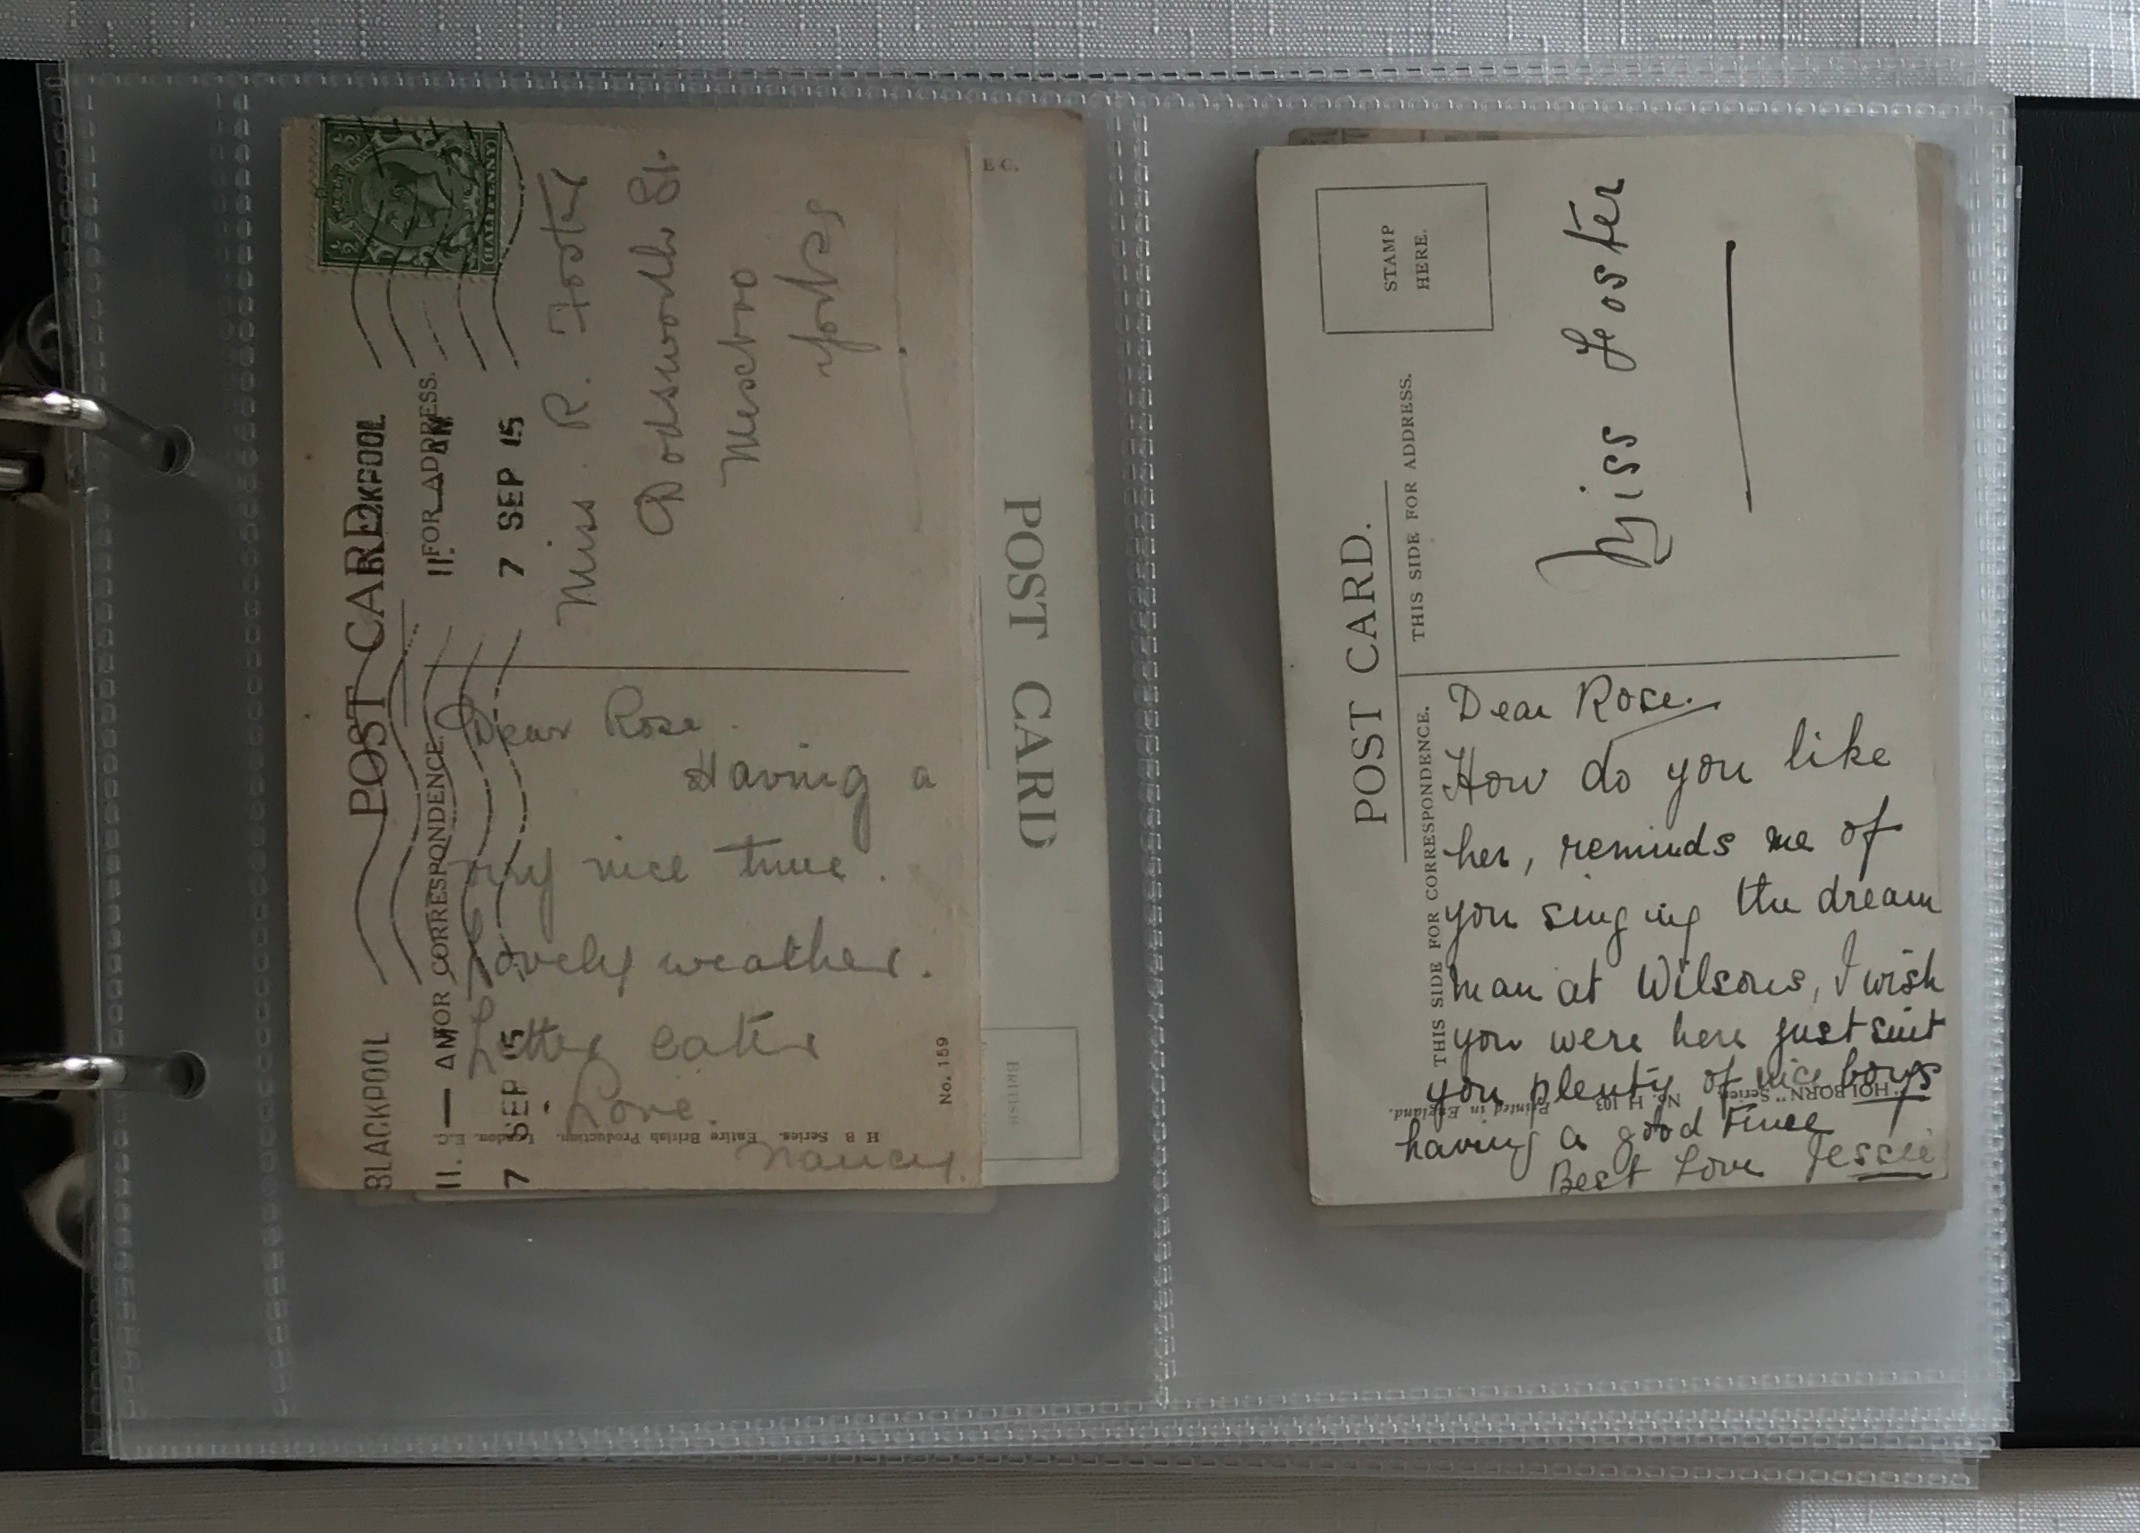 POST CARD
BLACKPOOL
FOR ADDRESS.
7 SEP 15
HALFPENNY
Miss. R. Foster
Dodsworth St.
Mexboro
Yorks
BLACKPOOL
11. — AM
7 SEP 15
FOR CORRESPONDENCE.
Dear Rose.
Having a
very nice time.
Lovely weather.
Letter later
Love.
Nancy.
H B Series. Entire British Production. London. E.C.
No. 159
E C.
POST CARD
BRITISH
POST CARD.
STAMP
HERE.
THIS SIDE FOR ADDRESS.
Miss Foster
THIS SIDE FOR CORRESPONDENCE.
Dear Rose.
How do you like
her, reminds me of
you singing the dream
man at Wilsons, I wish
you were here just suit
you plenty of nice boys
having a good time
Best Love Jessie
"HOLBORN" Series No. H 103 Printed in England.